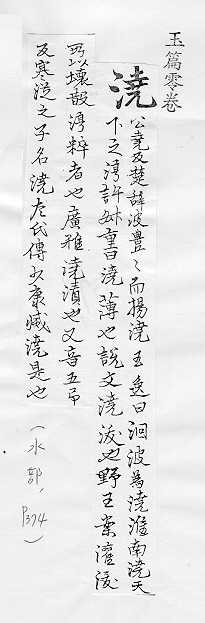 玉篇零卷
澆
公堯反楚辭波豊〻而揚澆王逸曰洄波爲澆淮南澆天
下之淳許料重曰澆薄也說文澆沃也野王案灌沃
所以壞敦淳粹者也廣雅澆漬也又音五吊
反寒浞之子名澆左氏傳少康滅澆是也
(水部, P374)